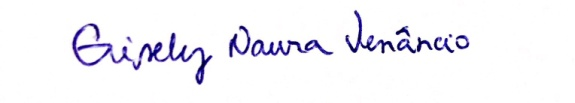 Gisely Naura Venâncio